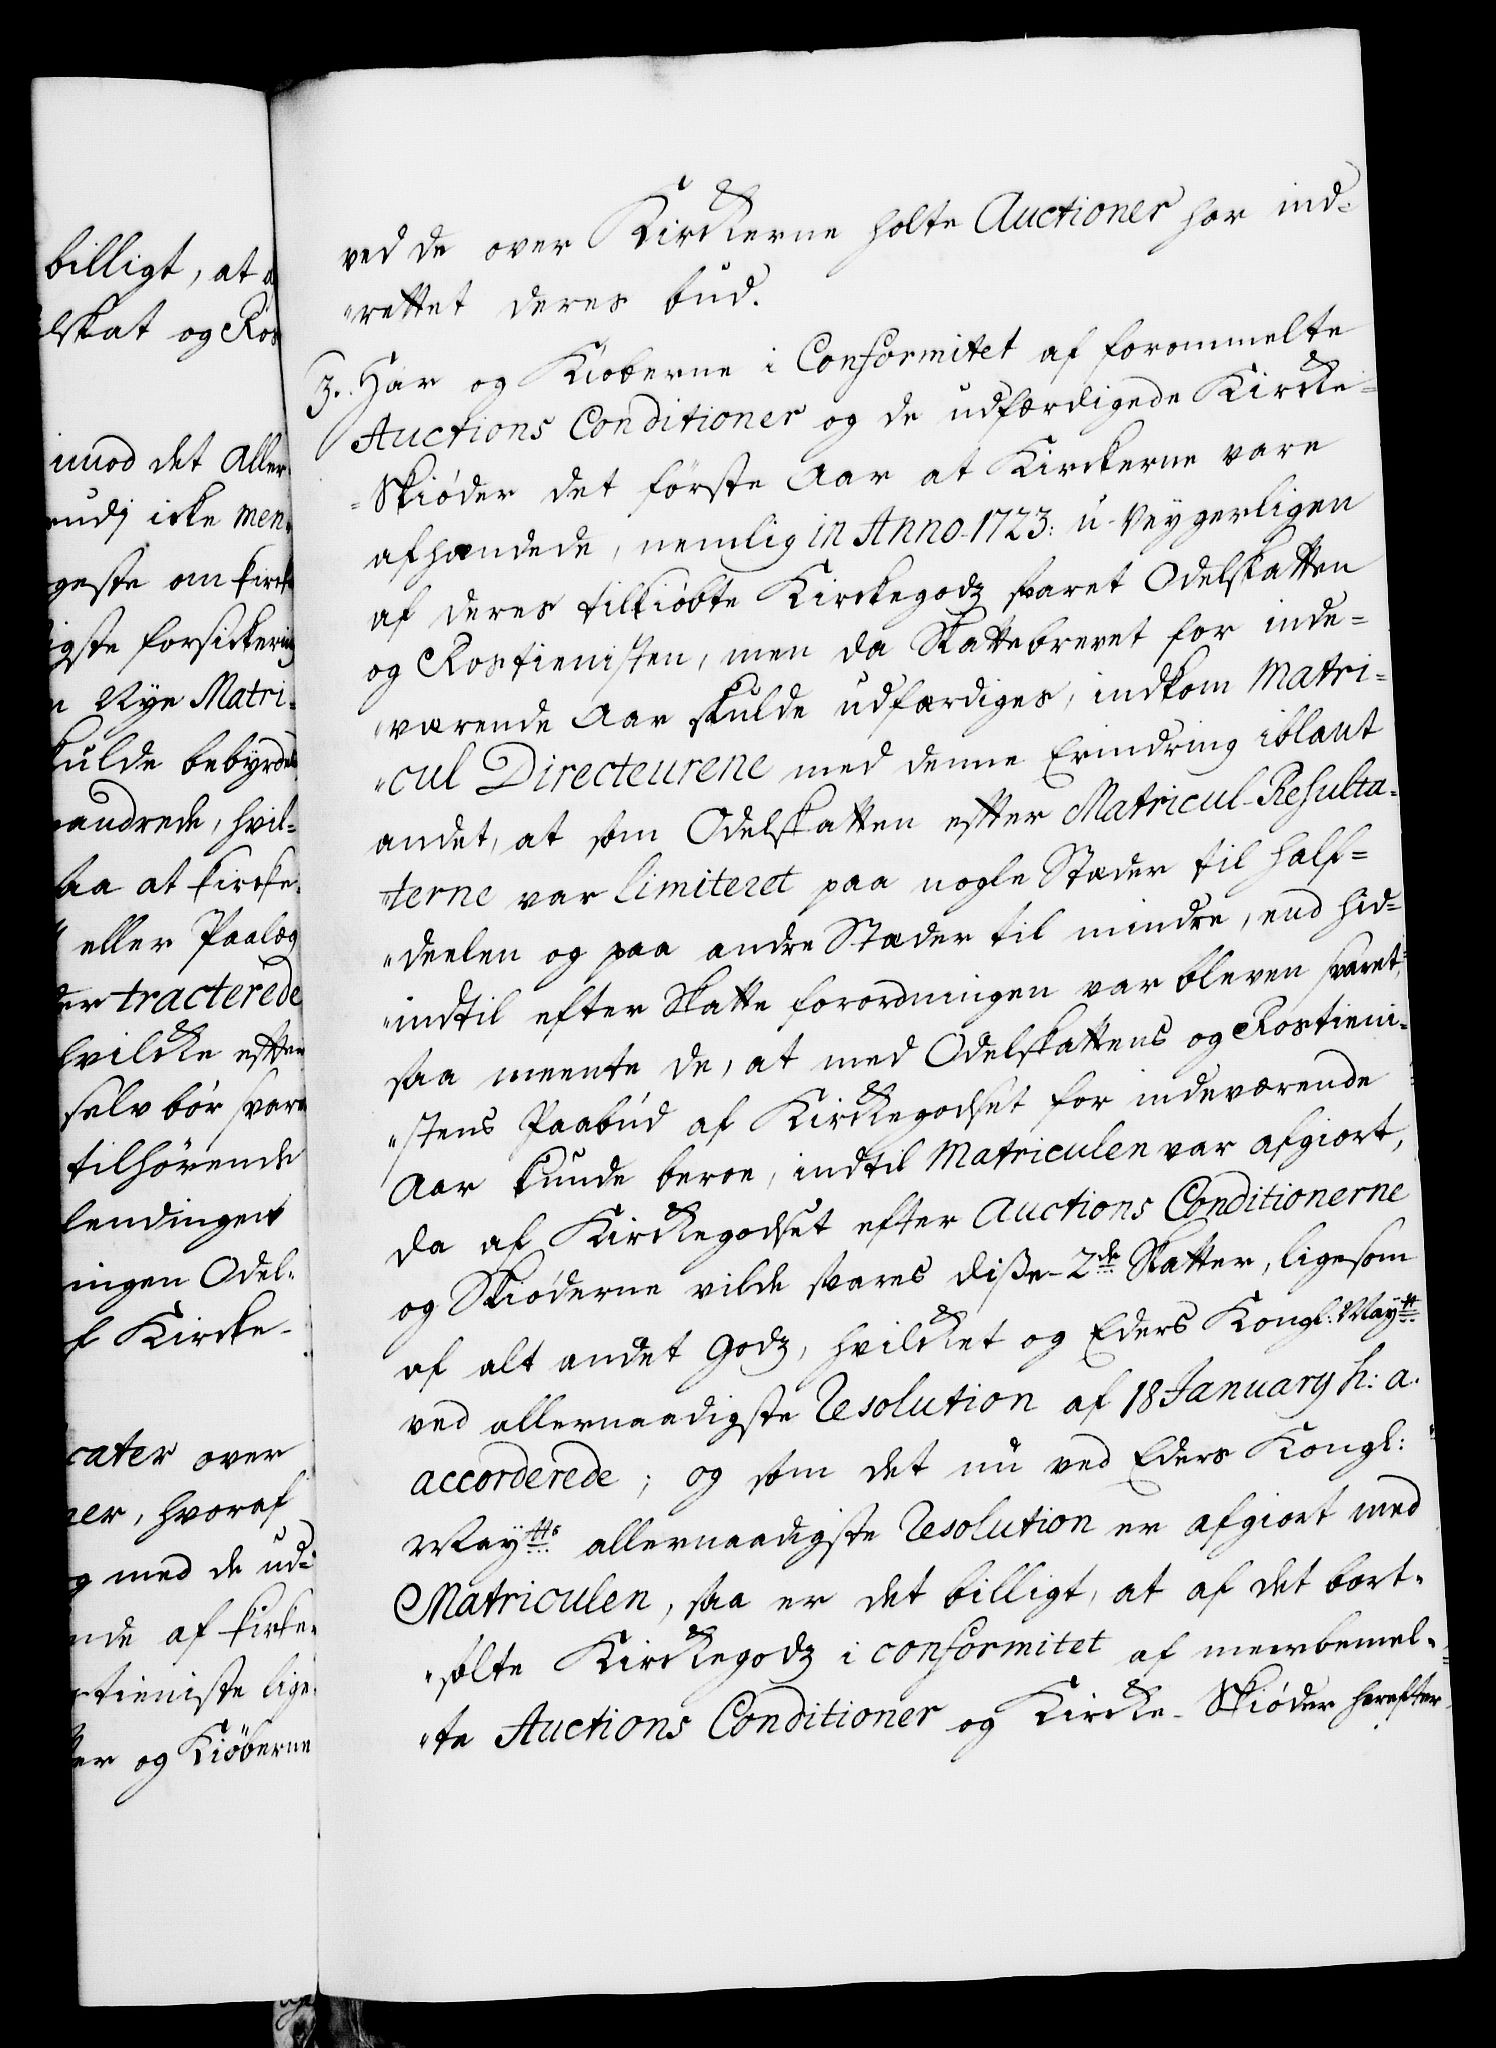 billigt, at
lskat og Ros
imod det Aller
rudj icke men
geste om kirck
igste forsickering
Nÿe Matri-
kulde bebÿrdes
andrede, hvil-
paa at kircke-
eller Paalæg
er tracterede
hvilcke efter
selv bör svare
tilhörende
lendingen
ingen Odel-
f Kircke-
cater over
ner, hvoraf
g med de ud-
nde af kircke-
rtieniste lige-
er og Kiöberne
ved de over Kirckerne holte Auctioner har ind-
"rettet deres bud.
3. Har og Kiöberne i Conformitet af forommelte
Auctions Conditioner og de udfærdigede Kircke-
Skiöder det förste Aar at Kirckerne vare
afhændede, nemlig in Anno 1723: u-Veygerligen
af deres tilkiöbte Kirckegodz svaret Odelskatten
og Rostienisten, men da Skattebrevet for inde-
"værende Aar skulde udfærdiges, indkom Matri-
"cul Directeurene med denne Erindring iblant
andet, at som Odelskatten efter Matricul-Resulta-
"terne var limiteret paa nogle Stæder til half-
"deelen og paa andre Stæder til mindre, end hid-
"indtil efter Skatte forordningen var bleven svaret,
saa meente de, at med Odelskattens og Rostieni-
"stens Paabud af Kirckegodset for indeværende
Aar kunde beroe, indtil Matriculen var afgiort,
da af Kirckegodset efter Auctions Conditionerne
og Skiöderne vilde svares diße 2de Skatter, ligesom
af alt andet Godz, hvilcket og Eders Kongl: Maytt
ved allernaadigste Resolution af 18 January h: a.
accorderede; og som det nu ved Eders Kongl:
Maytts allernaadigste Resolution er afgiort med
Matriculen, saa er det billigt, at af det bort-
"solte Kirckegodz i conformitet af meerbemel-
"te Auctions Conditioner og Kircke-Skiöder herefter